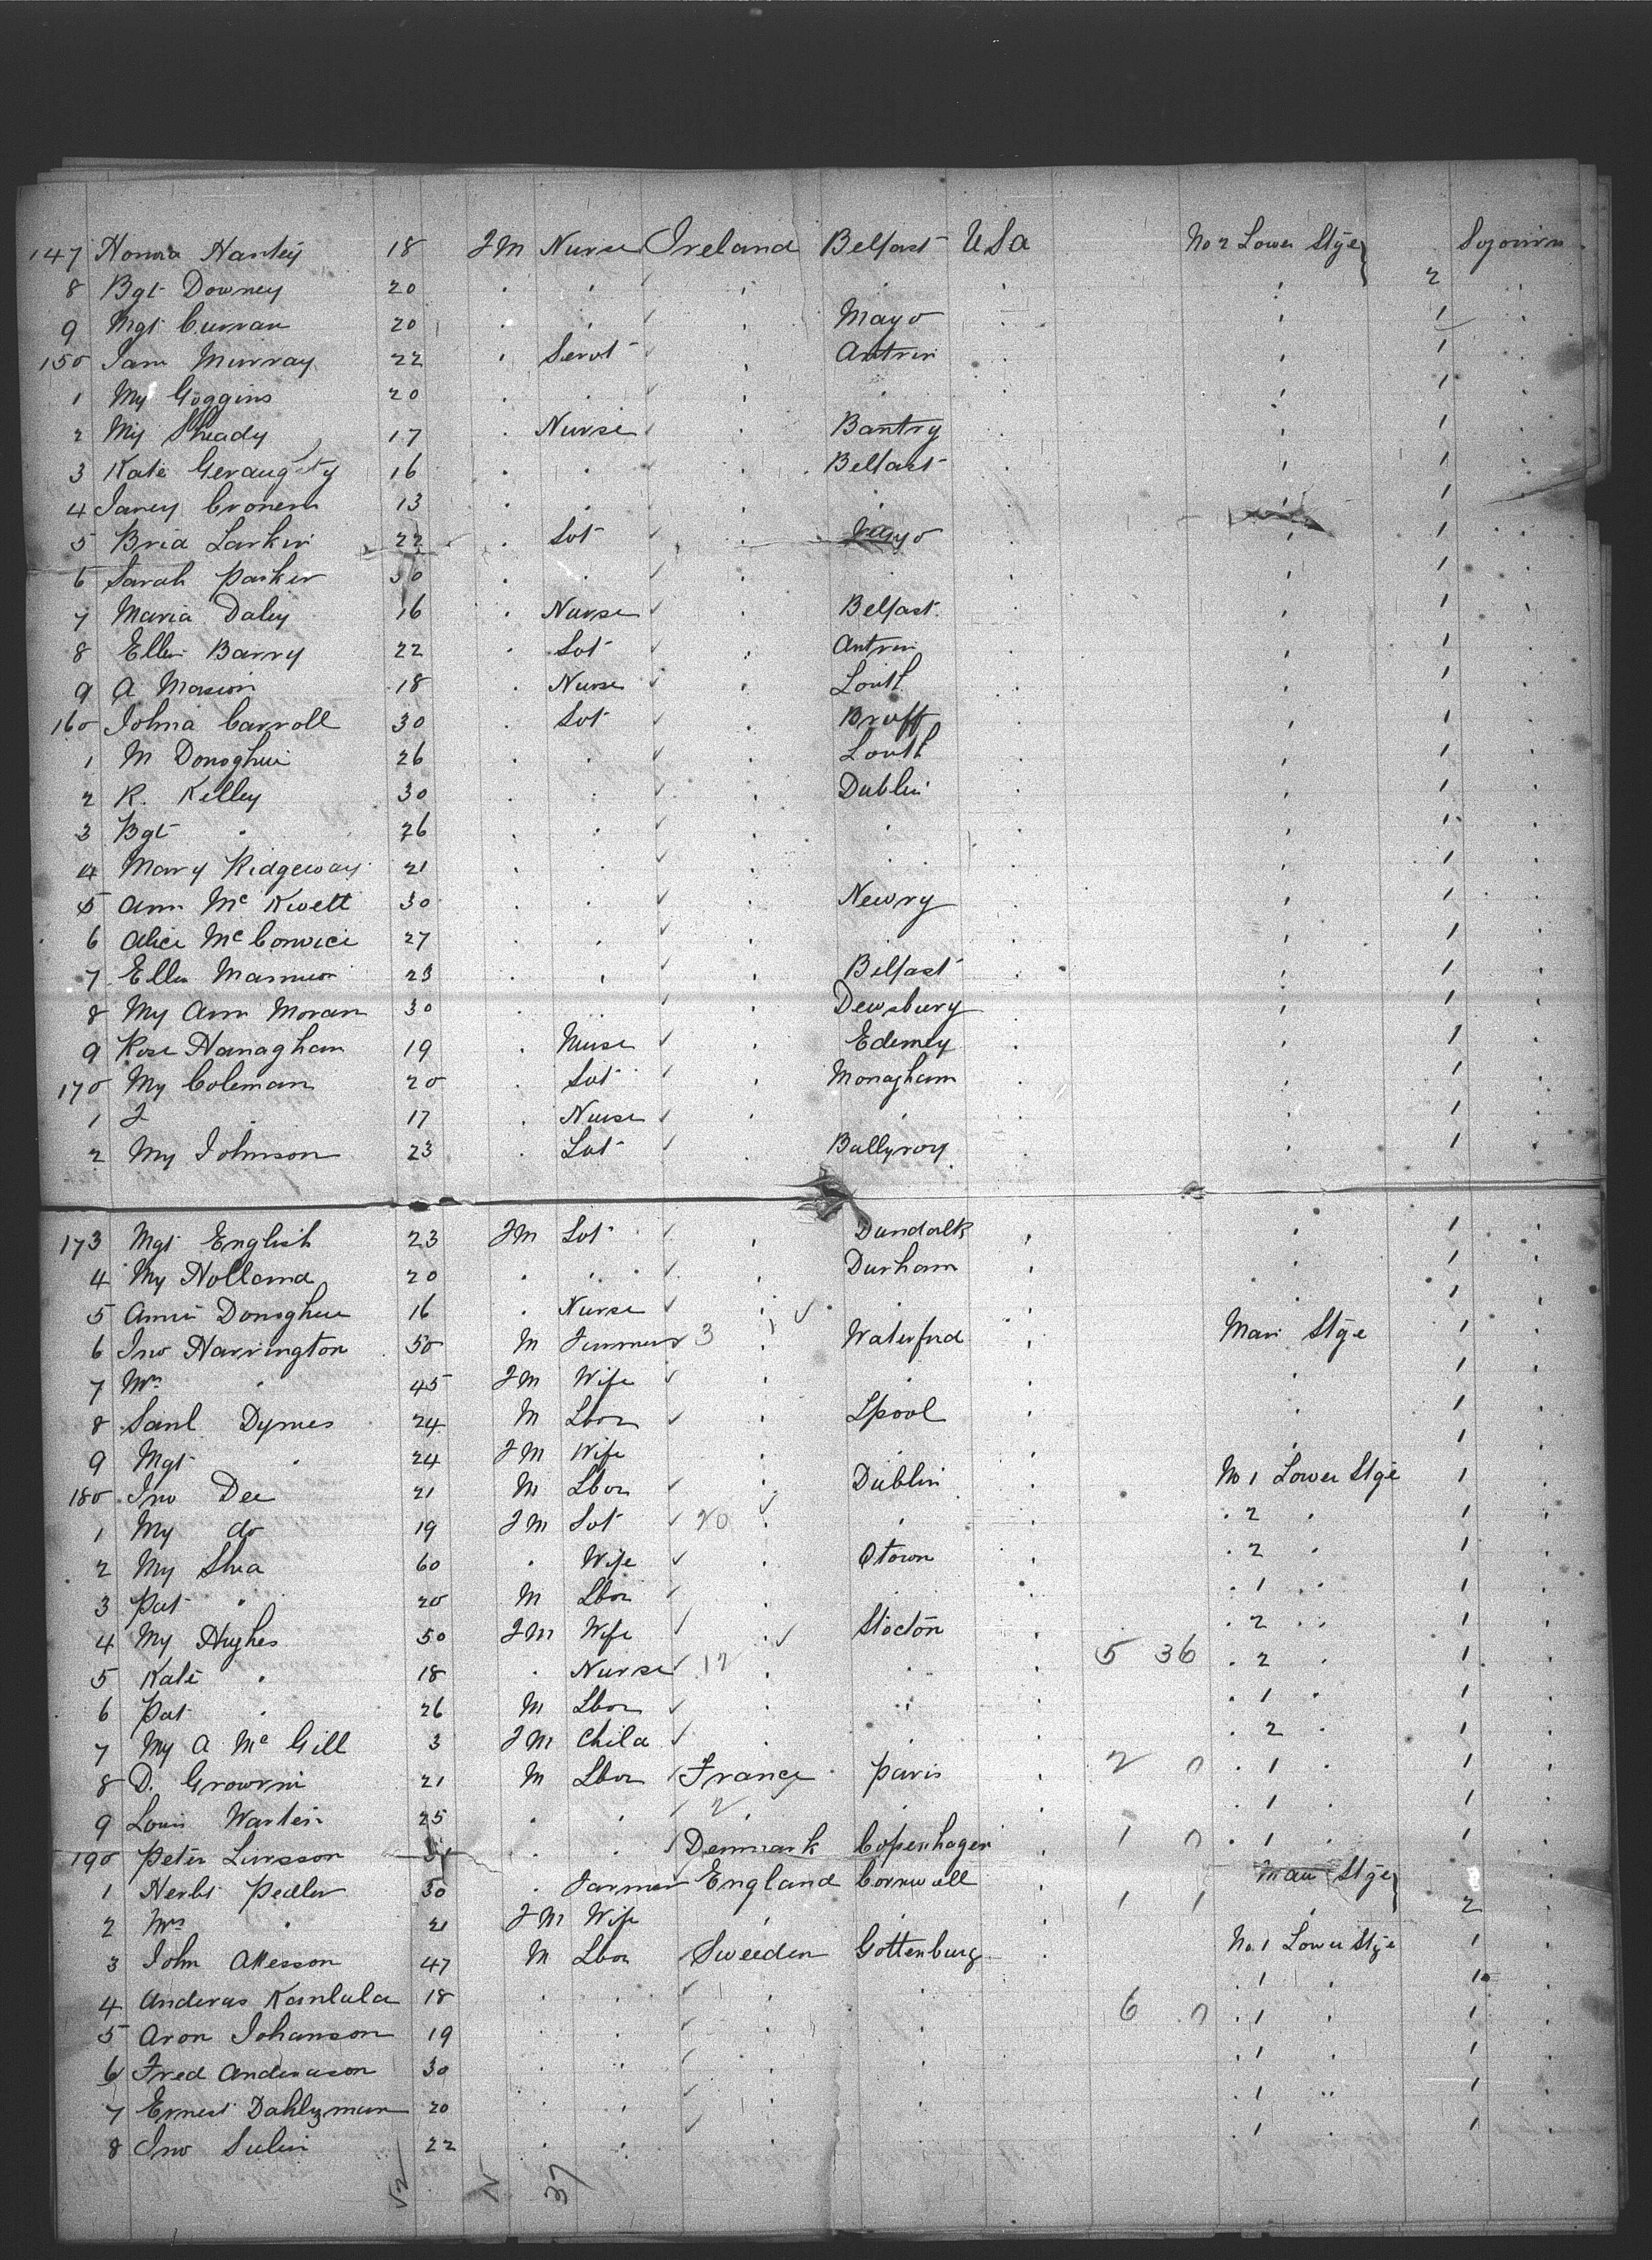 147 Honora Hanley 18 FM Nurse Ireland Belfast USa No 2 Lower Stge Sojourn
8 Bgt Downey 20 2
9 Mgt Curran 20 Mayo 1
150 Jam Murray 22 Servt Antrim 1
1 My Goggins 20 1
2 My Sheady 17 Nurse Bantry 1
3 Kate Geraughty 16 Belfast 1
4 Janey Cronern 13 1
5 Brid Larkin 22 Svt Mayo 1
6 Sarah Parker 30 1
7 Maria Daley 16 Nurse Belfast 1
8 Ellen Barry 22 Svt Antrim 1
9 A Masion 18 Nurse Louth 1
160 Johna Carroll 30 Svt Bruff 1
1 M Donoghue 26 Louth 1
2 R. Kelley 30 Dublin 1
3 Bgt " 26 1
4 Mary Ridgeway 21 1
5 Ann Mc Kwett 30 Newry 1
6 Alice Mc Convice 27 1
7 Ellen 23 Belfast 1
8 My Ann Moran 30 Dewsbury 1
9 Rose Hanagham 19 Nurse Ederney 1
170 My Coleman 20 Svt Monagham 1
1 J " 17 Nurse 1
2 My Johnson 23 Svt Ballyroy 1
173 Mgt English 23 FM Svt Dundalk 1
4 My Holland 20 Durham 1
5 Annie Donoghue 16 Nurse 1
6 Jno Harrington 50 M 3 Waterford Main Stge 1
7 Mrs " 45 FM Wife 1
8 Saml Dymes 24 M Lbor Lpool 1
9 Mgt " 24 FM Wife 1
180 Jno Dee 21 M Lbor Dublin No 1 Lower Stge 1
1 My do 19 FM Svt 20 " 2 " 1
2 My Shea 60 " Wife Qtown " 2 " 1
3 Pat " 20 M Lbor " 1 " 1
4 My Hughes 50 FM Wife Stocton " 2 " 1
5 Kate " 18 " Nurse 12 5 36 " 2 " 1
6 Pat " 26 M Lbor " 1 " 1
7 My A Mc Gill 3 FM Child " 2 " 1
8 D. Growrni 21 M Lbor France Paris 2 0 " 1 " 1
9 Louis Wartein 25 2 " 1 " 1
190 Peter Larsson Denmark Copenhagen 1 0 " 1 " 1
1 Herbt Pedler 30 " Farmer England Cornwall Main Stge
2 Mrs " 21 FM Wife 1 1 2
3 John Akesson 47 M Lbor Sweeden Gottenburg No 1 Lower Stge 1
4 Anderas Kanlula 18 " 1 " 1
5 Aron Johanson 19 6 0 " 1 " 1
6 Fred Anderason 30 " 1 " 1
7 Ernest Dahlzman 20 " 1 " 1
8 Jno Sulin 22 " 1 " 1
52 N 37